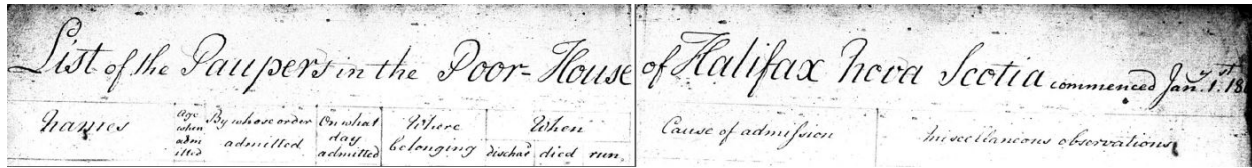 List of the Paupers in the Poor-House of Halifax Nova Scotia commenced Jany. 1st. 18
Names
Age when admitted
By whose order admitted
On what day admitted
Where belonging
When
dischard died run.
Cause of admission
Miscellaneous observations